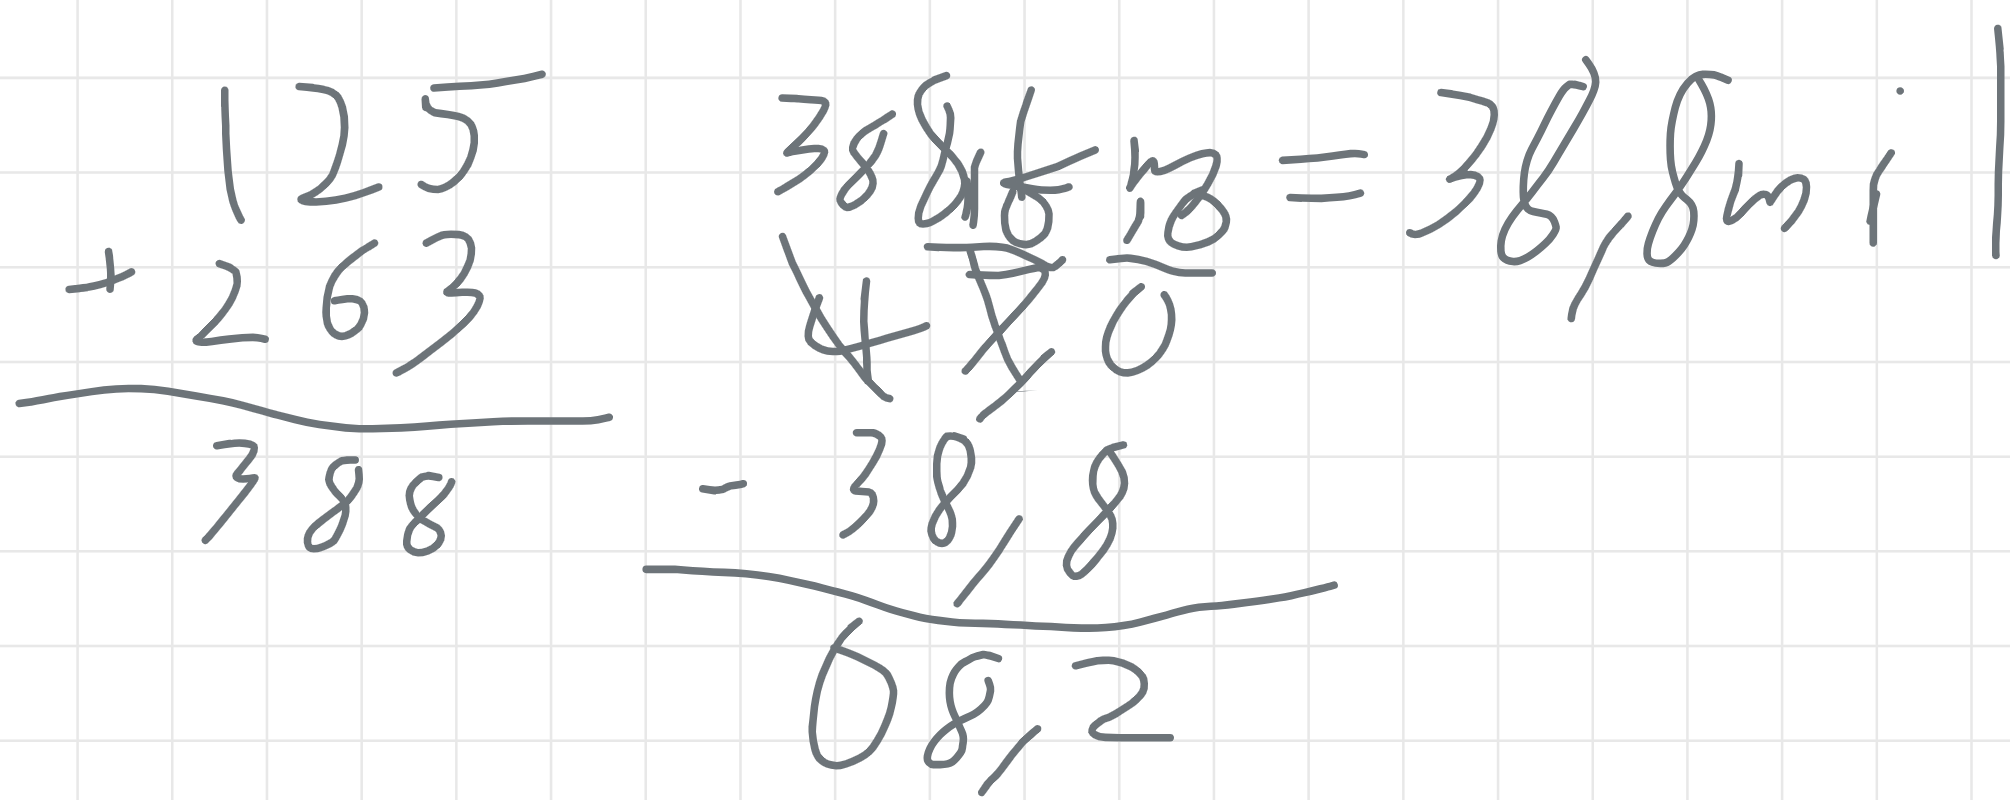 125
+ 263
388
388km = 38,8mil
16,10
47,0
- 38,8
08,2